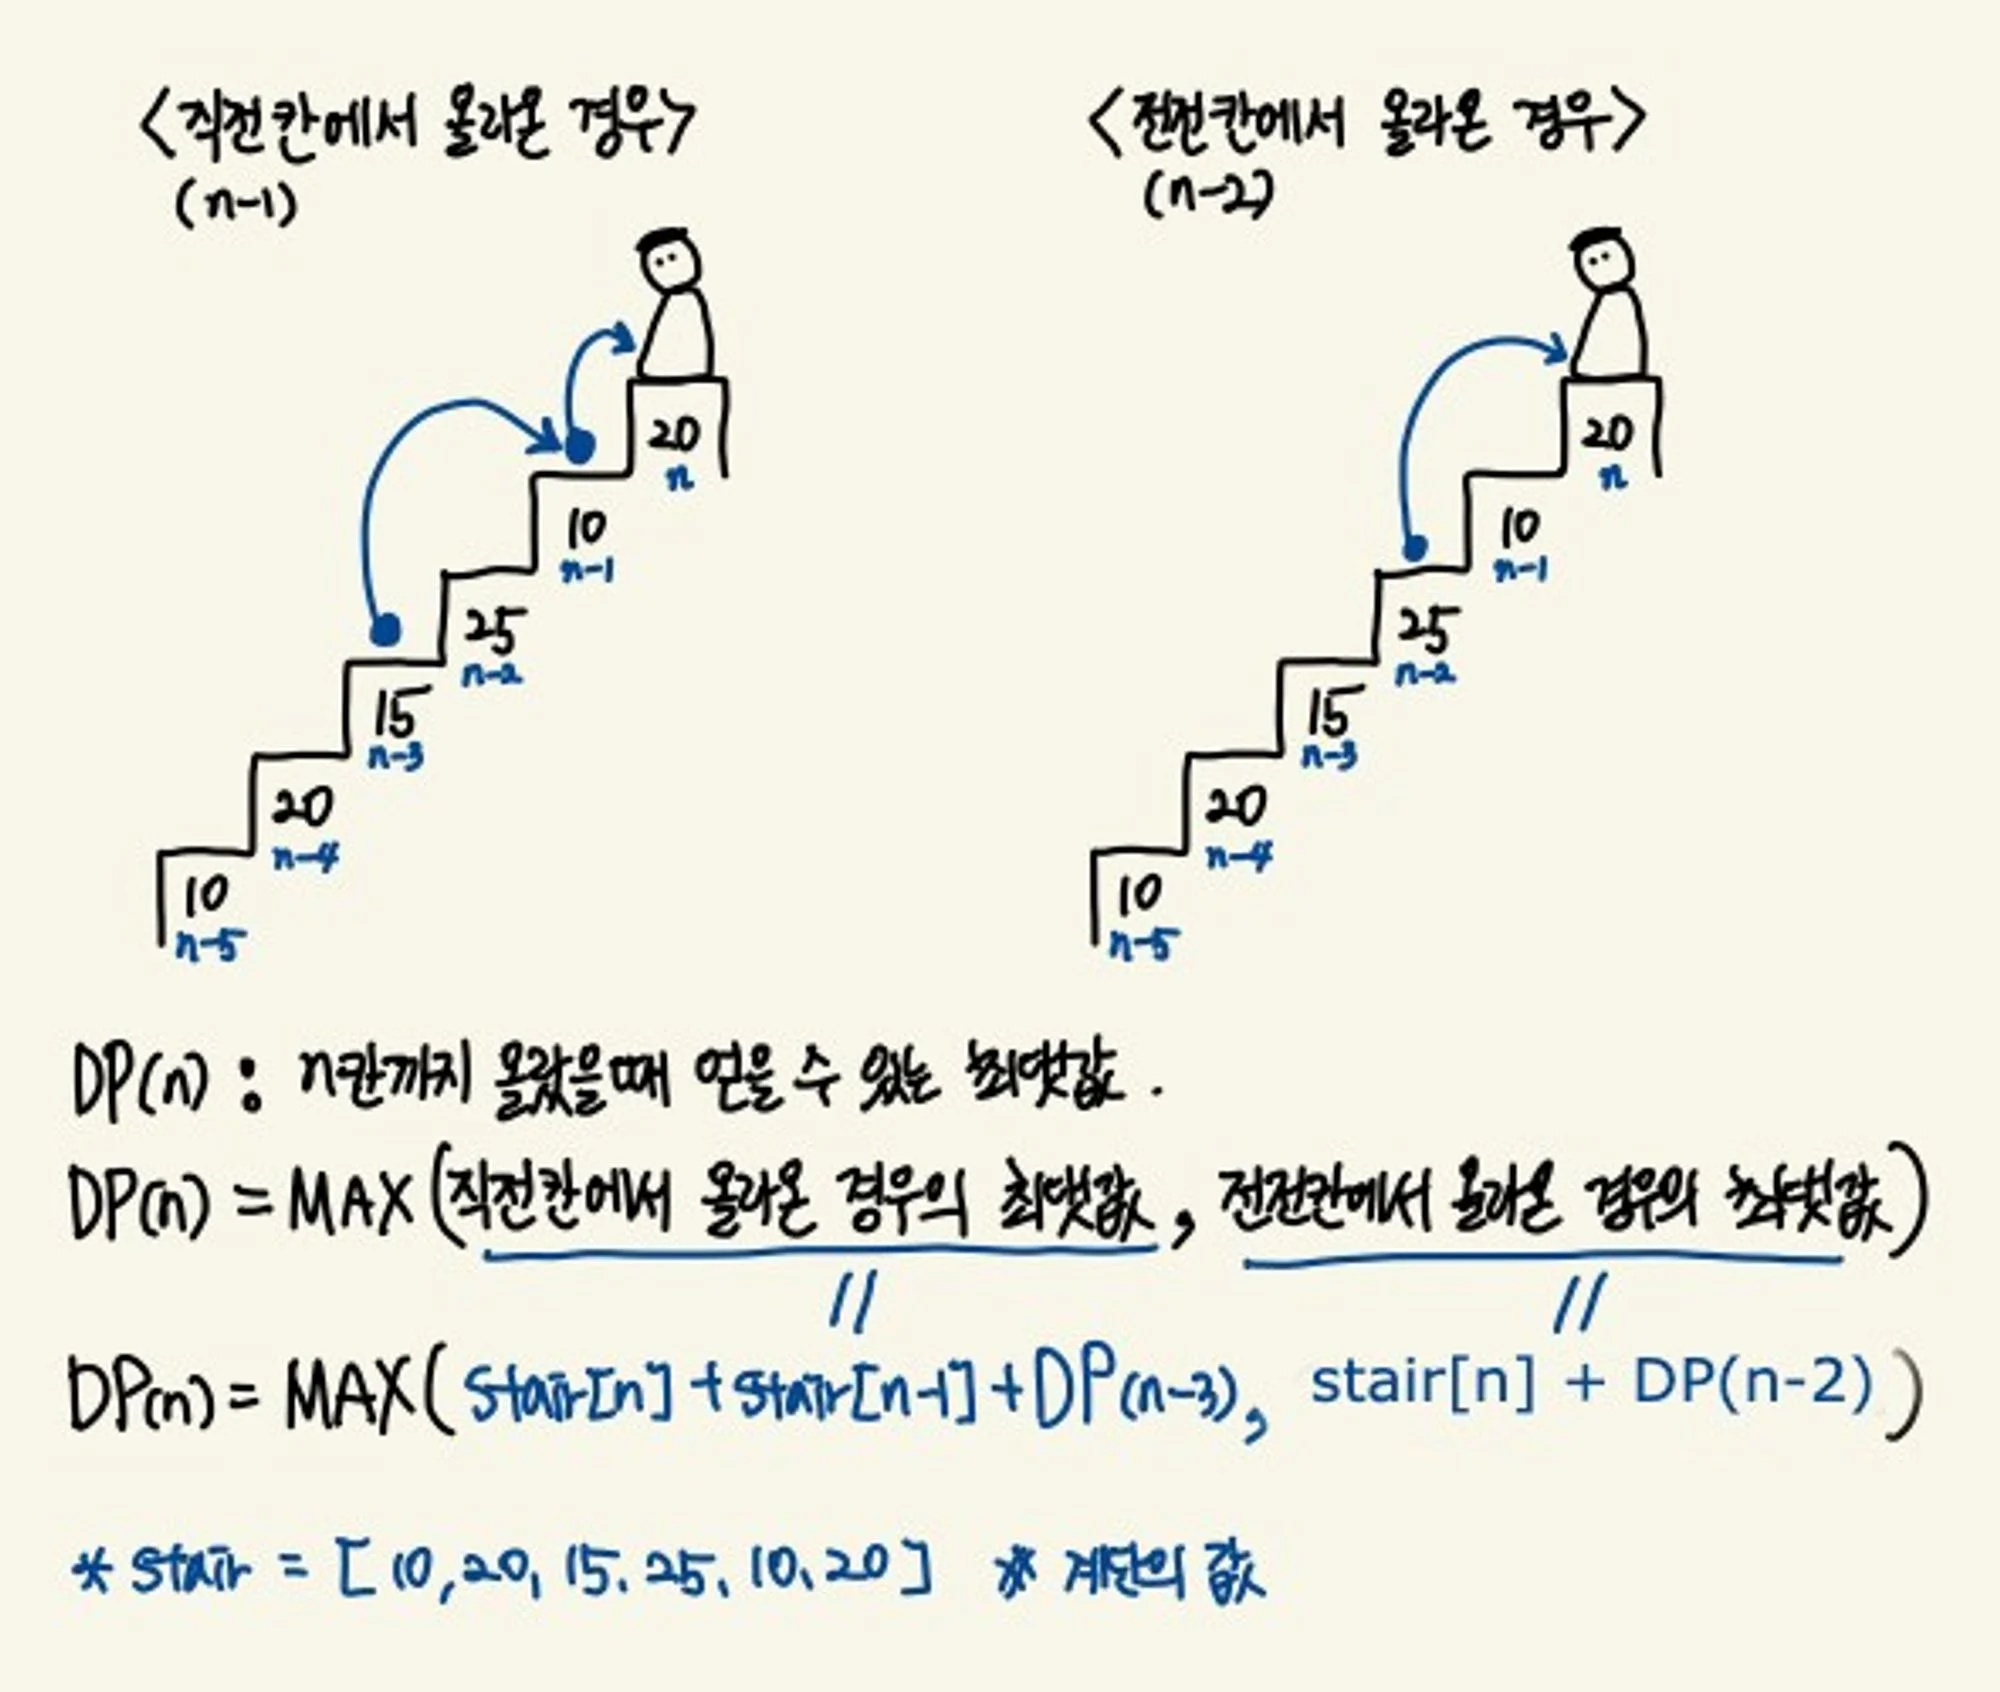 <직전칸에서 올라온 경우>
(n-1)
20
n
10
n-1
25
n-2
15
n-3
20
n-4
10
n-5
<전전칸에서 올라온 경우>
(n-2)
20
n
10
n-1
25
n-2
15
n-3
20
n-4
10
n-5
DP(n) : n칸까지 올랐을때 얻을 수 있는 최댓값.
DP(n) = MAX(직전칸에서 올라온 경우의 최댓값, 전전칸에서 올라온 경우의 최댓값)
// //
DP(n) = MAX( stair[n] + stair[n-1] + DP(n-3), stair[n] + DP(n-2) )
* stair = [ 10, 20, 15. 25. 10. 20 ] * 계단의 값